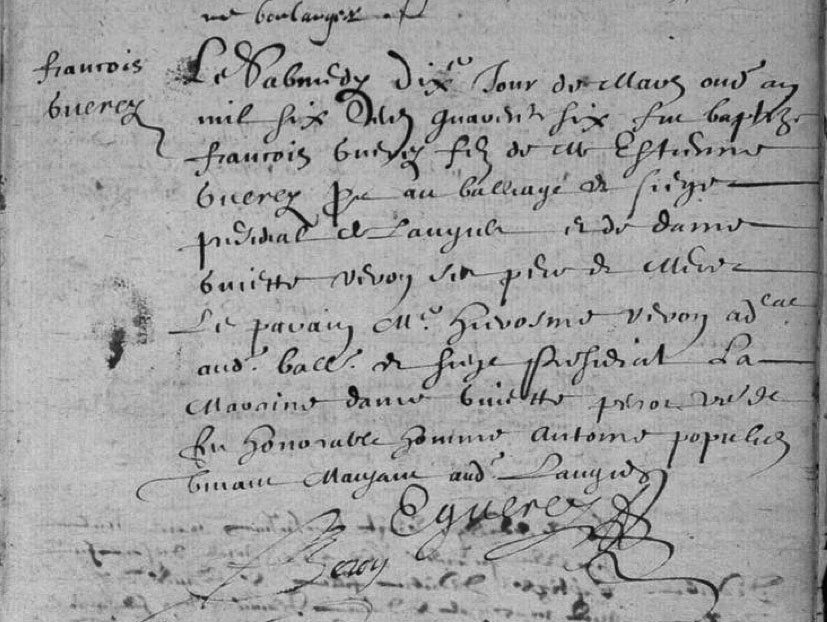 me boulanger
francois
Guerey
Le Sabmedy dixe Jour de Mars aud an
mil six cens quarente six fut baptize
francois Guerey filz de Me Estienne
Guerey pr au bailliage et siege
presidial de Langres et de dame
Guiette Veron ses pere et Mere
Le parain Me. Hierosme Veron adcat
aud. baill. et siege presidial La
Maraine dame Guiette vefve de
feu honorable homme Antoine
vivant Marchant aud. Langres
EGuerey
Veron